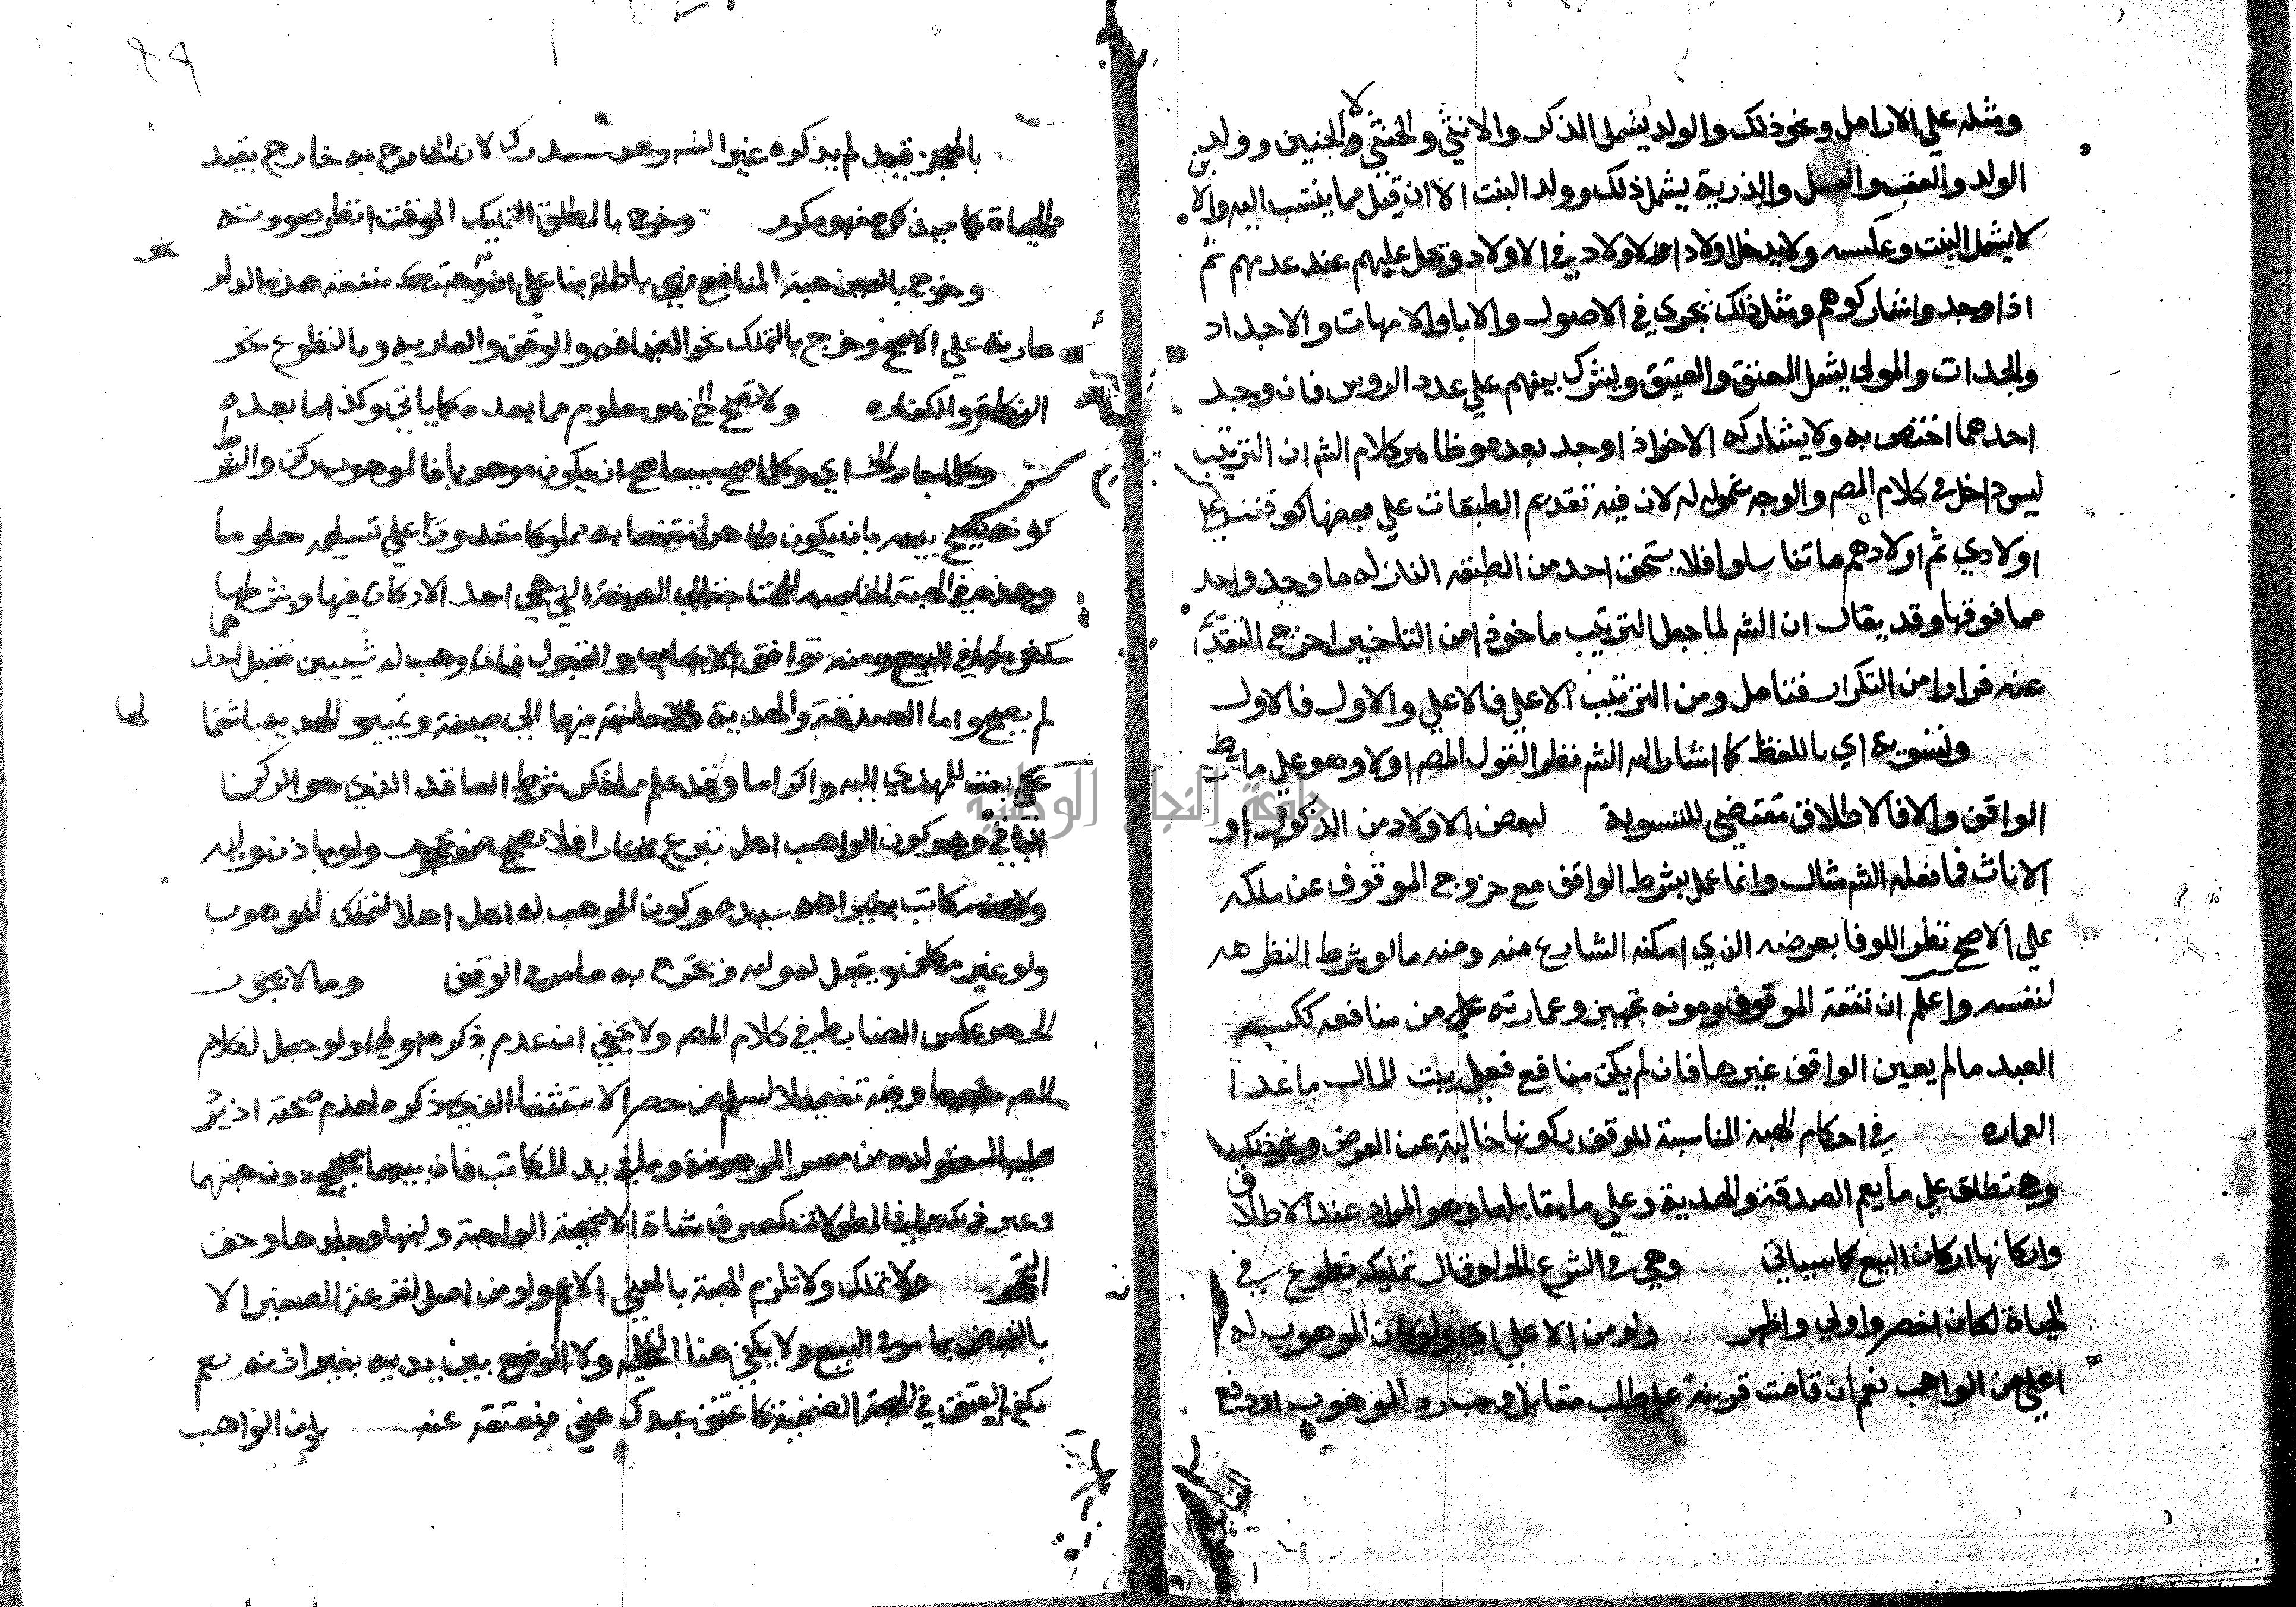 ومثله علي الارامل ونحو ذلك والولد يشمل الذكر والانثي والخنثي لا الجنين وولد
الولد والعقب والنسل والذرية يشمل ذلك وولد البنت الا ان قيل مما ينتسب اليه والابن
لا يشمل البنت وعكسه ولا يدخل اولاد الاولاد في الاولاد وتحمل عليهم عند عدمهم ثم
اذا وجدوا شاركوهم ومثل ذلك يجري في الاصول والابا والامهات والاجداد
والجدات والمولي يشمل المعتق والعتيق ويشرك بينهم علي عدد الروس فان وجد
احدهما اختص به ولا يشاركه الاخر اذا وجد بعد هو ظاهر كلام الشم ان الترتيب
ليس داخل في كلام المصـ والوجه شموله له لان فيه تقديم الطبقات علي بعضها كوقفت علي
اولادي ثم اولادهم ما تناسلوا فلا يستحق احد من الطبقه النازله ما وجد واحد
مما فوقها وقد يقال ان الشـ لما جعل الترتيب ماخوذا من التاخير اخرج التقديم
عنه فرارا من التكرار فتامل ومن الترتيب الاعلي فالاعلي والاول فالاول
وتسوية اي باللفظ كما اشار اليه الشـ نظرا لقول المصـ اولا وهو علي ما شرط
الواقف والا فالاطلاق مقتضي للتسوية لبعض الاولاد من الذكور او
الاناث فما فعله الشـ مثال وانما عمل بشرط الواقف مع خروج الموقوف عن ملكه
علي الاصح نظرا للوفا بعرضه الذي امكنه الشارع منه ومنه ما لو شرط النظر
لنفسه واعلم ان نفقة الموقوف ومونه تجهيزه وعمارته علي من منافعه ككسب
العبد ما لم يعين الواقف غيرها فان لم يكن منافع فعلي بيت المال ما عدا
العماره في احكام الهبه المناسبة للوقف بكونها خالية عن العوض ونحو ذلك
وهي تطلق علي ما يعم الصدقة والهدية وعلي ما يقابلهما وهو المراد عند الاطلاق
واركانها اركان البيع كما سياتي وهي في الشرع الخ لو قال تمليك تطوع في
الحياة لكان اخصر واولي واظهر ولو من الاعلي اي ولو كان الموهوب له
اعلي من الواهب نعم ان قامت قرينة علي طلب مقابل وجب رد الموهوب او دفع
قيد لم يذكره غير الشـ وهو مستدرك لان الخارج به خارج بقيد
الحياة كما سيذكره فهو مكرر وخرج بالمطلق التمليك الموقت انظر صورته
وخرج بالعين هبة المنافع فهي باطلة بنا علي ان منفعة هذه الدار
عارية علي الاصح وخرج بالتمليك نحو الضيافه والوقف والعاريه وبالتطوع نحو
الزكاة والكفاره ولا تصح الخ هو معلوم مما بعده كما ياتي وكذا ما بعده
وكلما جاز الخ اي وكلما صح بيعه صح ان يكون موهوبا فالموهوب ركن والشرط
كونه يصح بيعه بان يكون طاهرا منتفعا به مملوكا مقدورا علي تسليمه معلوما
وهذه في الهبة الخاصه المحتاجة الي الصيغة التي هي احد الاركان فيها وشرطها
كشرطها في البيع ومنه توافق الايجاب والقبول فلو وهب له شيئين فقبل احدهما
لم يصح واما الصدقة والهدية فلا حاجة فيهما الي صيغة
للمهدي اليه اكراما وقد علم مما ذكر شرط العاقد الذي هو الركن
الثاني وهو كون الواهب اهل تبرع مختارا فلا تصح من محجور ولو باذن وليه
ولا من مكاتب بغير اذن سيده وكون الموهب له اهل اهلا لتملك الموهوب
ولو غير مكلف ويقبل له وليه وخرج به ما مر في الوقف وما لا يجوز
الخ هو عكس الضابط في كلام المصـ ولا يخفي ان عدم ذكره اولي ولو جعل لكلام
المصـ وفيه تفصيلا لسلم من حصر الاستثنا الذي ذكره لعدم صحته اذ يرد
عليه من الموهونة وما في يد المكاتب فان بيعهما صحيح دون هبتهما
وغير ذلك مما في المطولات كصوف شاة الاضحية الواجبة ولبنها وجلدها وحق
التحجر ولا تملك ولا تلزم الهبة بالمعني الاعم ولو من اصل لفرعه الصغير الا
بالقبض بما مر في البيع ولا يكفي هنا التخليه ولا الوضع بين يديه بغير اذنه نعم
يكفي العتق في الهبة الضمنية كاعتق عبدك عني فيعتقه عنه باذن الواهب